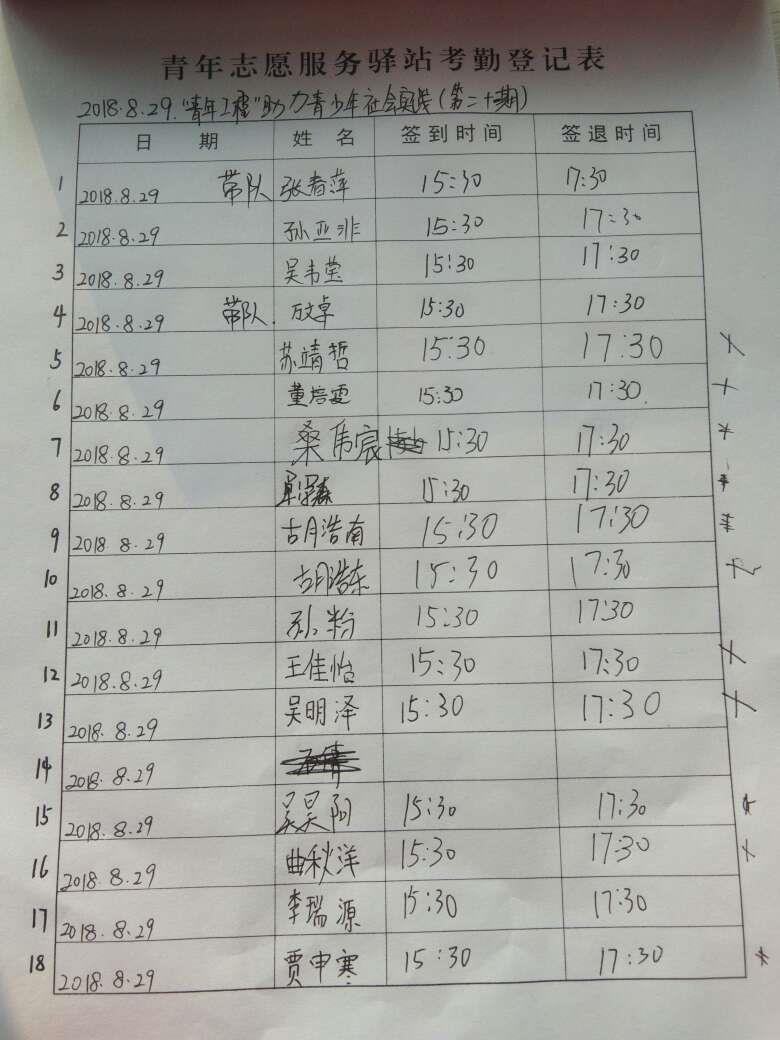 青年志愿服务驿站考勤登记表
2018.8.29."青年工程"助力青少年社会实践(第二十期)
日 期 姓 名 签到时间 签退时间
1 2018.8.29 带队 张春萍 15:30 17:30
2 2018.8.29 孙亚非 15:30 17:30
3 2018.8.29 吴韦莹 15:30 17:30
4 2018.8.29 带队. 15:30 17:30
5 2018.8.29 苏靖哲 15:30 17:30
6 2018.8.29 董培雯 15:30 17:30.
7 2018.8.29 桑伟宸 15:30 17:30
8 2018.8.29 15:30 17:30
9 2018.8.29 胡浩南 15:30 17:30
10 2018.8.29 胡浩东 15:30 17:30
11 2018.8.29 孙粉 15:30 17:30
12 2018.8.29 王佳怡 15:30 17:30
13 2018.8.29 吴明泽 15:30 17:30
14 2018.8.29
15 2018.8.29 吴昊阳 15:30 17:30
16 2018.8.29 曲秋洋 15:30 17:30
17 2018.8.29 李瑞源 15:30 17:30
18 2018.8.29 贾申寒 15:30 17:30